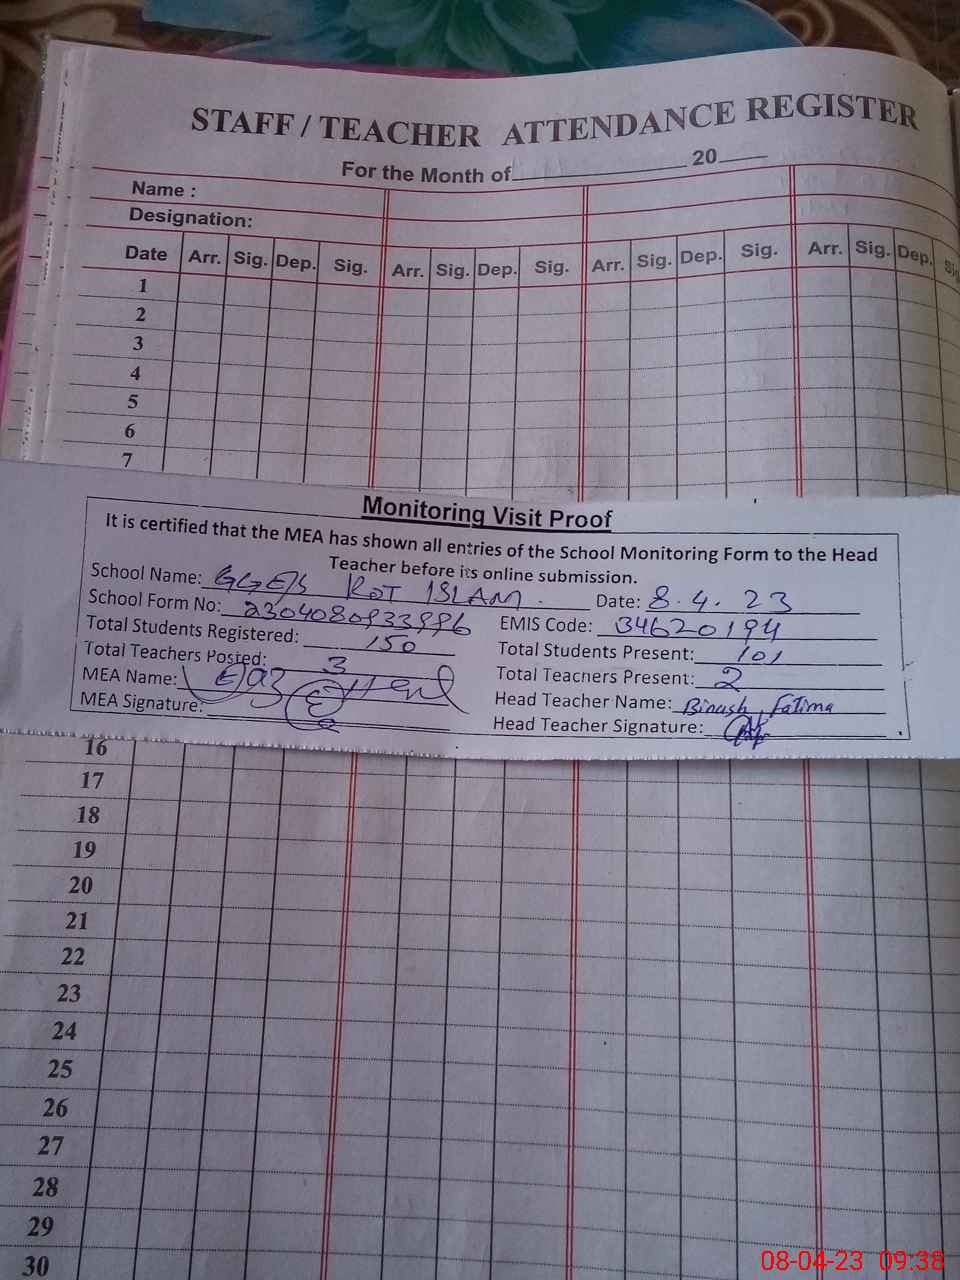 STAFF / TEACHER ATTENDANCE REGISTER
For the Month of 20
Name :
Designation:
Date Arr. Sig. Dep. Sig. Arr. Sig. Dep. Sig. Arr. Sig. Dep. Sig. Arr. Sig. Dep. Sig
1
2
3
4
5
6
7
Monitoring Visit Proof
It is certified that the MEA has shown all entries of the School Monitoring Form to the Head
Teacher before its online submission.
School Name: GGE/S KOT ISLAM. Date: 8.4.23
School Form No: EMIS Code: 34620194
Total Students Registered: 150 Total Students Present: 101
Total Teachers Posted: 3 Total Teachers Present: 2
MEA Name: Head Teacher Name: Binish Fatima
MEA Signature: Head Teacher Signature:
16
17
18
19
20
21
22
23
24
25
26
27
28
29
30
08-04-23 09:38